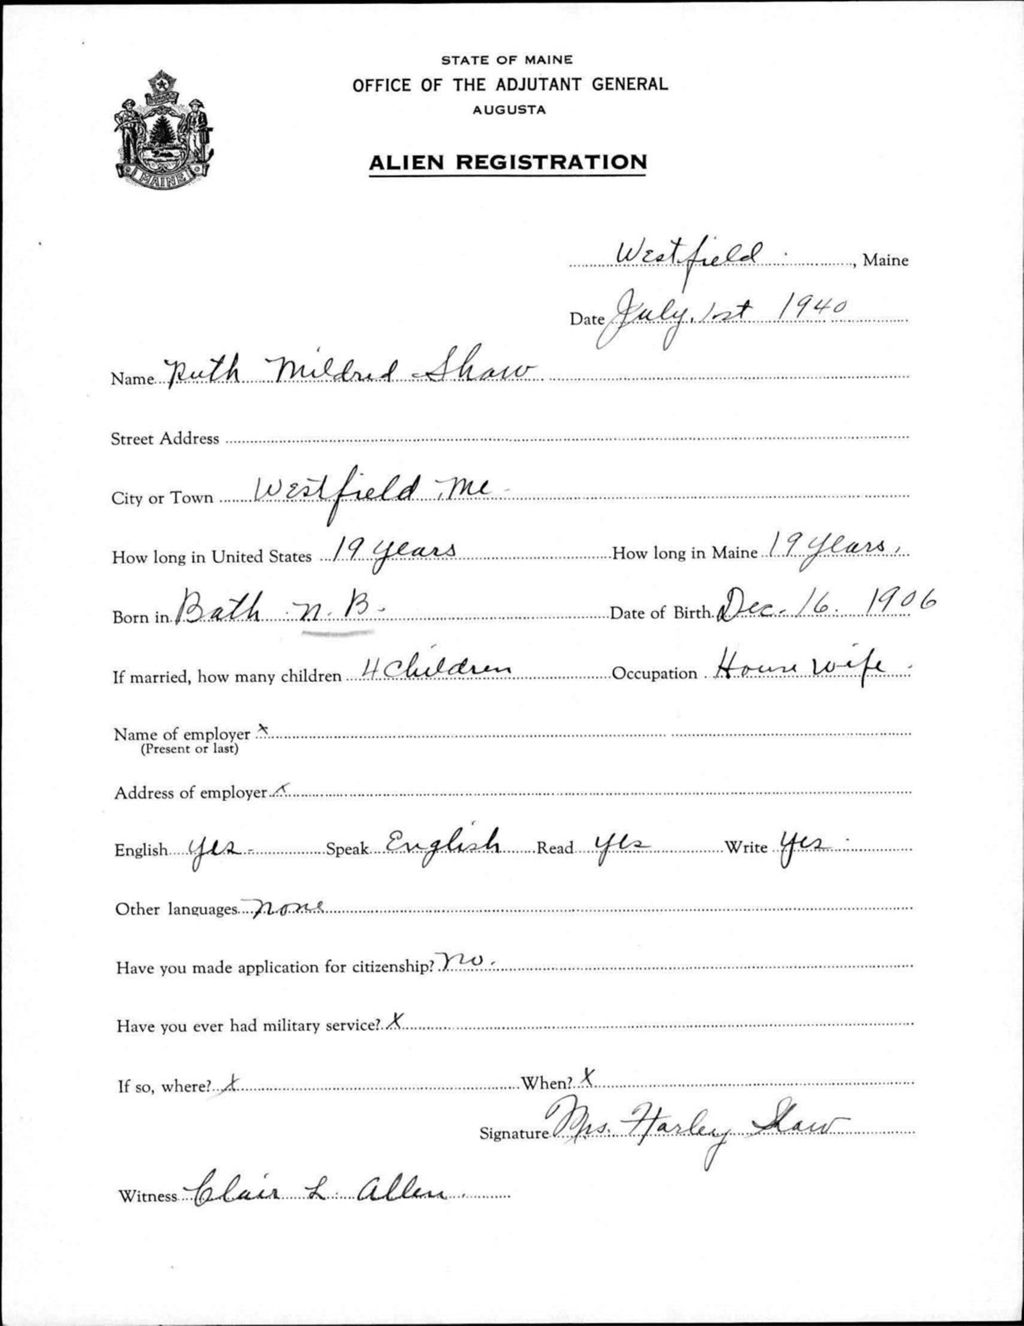 STATE OF MAINE
OFFICE OF THE ADJUTANT GENERAL
AUGUSTA
ALIEN REGISTRATION
MAINE
Westfield, Maine
Date July, 1st 1940
Name Ruth Mildred Shaw
Street Address
City or Town Westfield, Me
How long in United States 19 years How long in Maine 19 years,
Born in Bath N. B. Date of Birth Dec. 16. 1906
If married, how many children 4 Children Occupation House wife
Name of employer x
(Present or last)
Address of employer x
English yes Speak English Read yes Write yes
Other languages none
Have you made application for citizenship? no.
Have you ever had military service? X
If so, where? X When? X
Signature Mrs. Harley Shaw
Witness Clair L. Allen